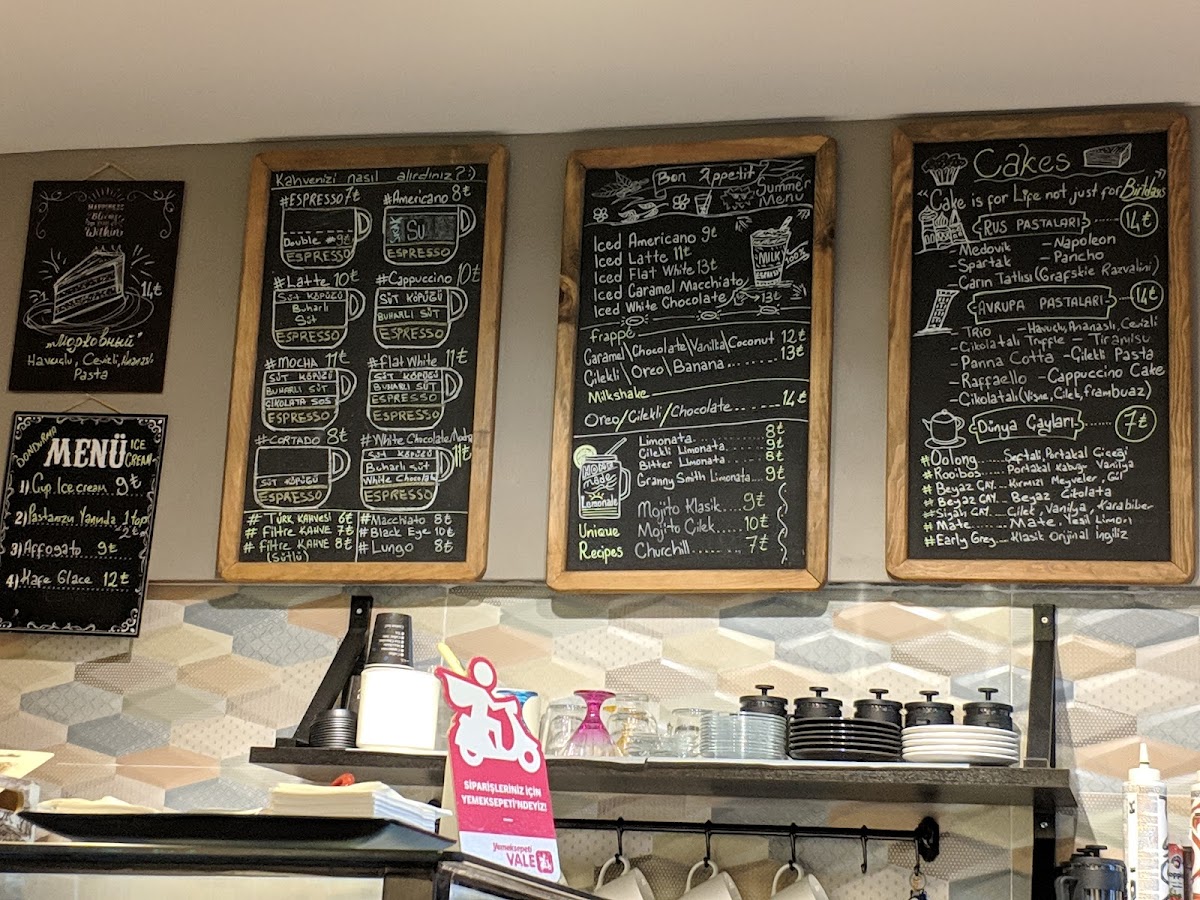 HAPPINESS
Blooms
from
Within
14₺
"Морковный"
Havuçlu, Cevizli, Ananaslı
Pasta
DONDURMA
MENÜ
ICE
CREAM
1) Cup Ice cream 9₺
2) Pastanızın Yanında 1 top
3) Affogato 9₺
4) Kafe Glace 12₺
Kahvenizi nasıl alırdınız? :)
#ESPRESSO 7₺
Double #9₺
ESPRESSO
#Americano 8₺
Su
ESPRESSO
#Latte 10₺
SÜT KÖPÜĞÜ
Buharlı
Süt
ESPRESSO
#Cappuccino 10₺
SÜT KÖPÜĞÜ
BUHARLI SÜT
ESPRESSO
#MOCHA 11₺
SÜT KÖPÜĞÜ
BUHARLI SÜT
ÇİKOLATA SOS
ESPRESSO
#Flat White 11₺
SÜT KÖPÜĞÜ
BUHARLI SÜT
ESPRESSO
ESPRESSO
#CORTADO 8₺
SÜT KÖPÜĞÜ
ESPRESSO
#White Chocolate Mocha
11₺
SÜT KÖPÜĞÜ
Buharlı süt
White Chocolate
ESPRESSO
# TÜRK KAHVESİ 6₺
# Filtre KAHVE 7₺
# Filtre KAHVE 8₺
(Sütlü)
#Macchiato 8₺
#Black Eye 10₺
#Lungo 8₺
Bon Appetit
Summer
Menu
Iced Americano 9₺
Iced Latte 11₺
Iced Flat White 13₺
Iced Caramel Macchiato
Iced White Chocolate 13₺
MILK
ESPRESSO
Frappe
Caramel\Chocolate\Vanilka\Coconut 12₺
Çilekli\Oreo\Banana........ 13₺
Milkshake
Oreo/Çilekli/Chocolate........ 14₺
HOME
made
Lemonade
Limonata......... 8₺
Çilekli Limonata......... 9₺
Bitter Limonata......... 8₺
Granny Smith Limonata.... 9₺
Unique
Recipes
Mojito Klasik.... 9₺
Mojito Çilek.... 10₺
Churchill........ 7₺
Cakes
"Cake is for Life not just for Birtdays
RUS PASTALARI ...... 14₺
- Medovik - Napoleon
- Spartak - Pancho
- Çarın Tatlısı (Grafskie Razvalini)
AVRUPA PASTALARI .... 14₺
- TRIO - Havuçlu, Ananaslı, Cevizli
- Çikolatalı Truffle - Tiramisu
- Panna Cotta - Çilekli Pasta
- Raffaello - Cappuccino Cake
- Çikolatalı (Visne, Çilek, frambuaz)
Dünya Çayları ...... 7₺
#Oolong...... Şeftali, Portakal Çiçeği
#Rooibos...... Portakal Kabuğu, Vanilya
#Beyaz ÇAY.... Kırmızı Meyveler, Gül
#Beyaz ÇAY.... Beyaz Çikolata
#Siyah ÇAY.... Çilek, Vanilya, Karabiber
#Mate........ Mate, Yeşil Limon
#Early Grey.... Klasik Orijinal İngiliz
SİPARİŞLERİNİZ İÇİN
YEMEKSEPETİ'NDEYİZ!
yemeksepeti
VALE